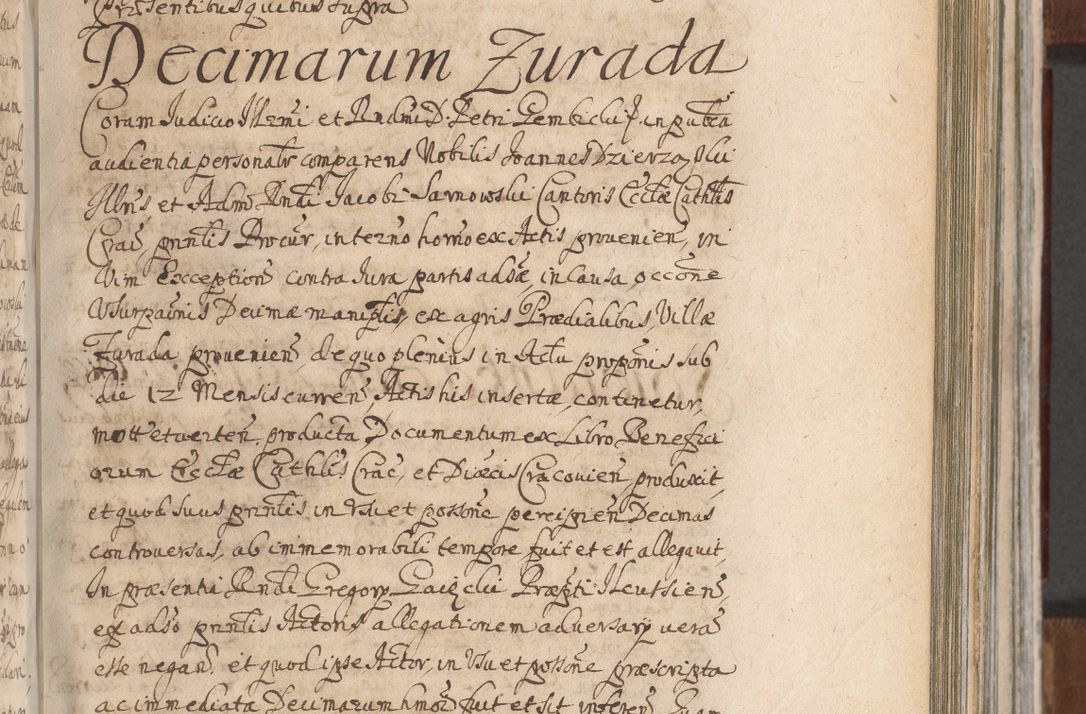 Præsentibus quibus supra
Decimarum Zurada
Coram Judicio Illrmi et Rndmi D. Petri Gembicki in publca
audientia personalr comparens Nobilis Joannes Dzierzaski
Illris et Admo Rndi Jacobi Sarnowski Cantoris Ecclæ Cathlis
Crac, prinlis Procur, in terno horno ex Actis provenien, in
Vim Exception contra Jura partis adsæ, in causa occone
Usurpaonis Decimæ maniplis, ex agris Prædialibus, Villæ
Zurada provenien, de quo plenius in Actu proponis sub
die 12 Mensis curren Actis his insertæ, continetur,
producta Documentum ex Libro Benefici
orum Ecclæ Cathlis Crac, et Diœcis Cracovien, produxit,
et quod suus prinlis in Usu et possone percipien Decimas
controversas, ab immemorabili tempore fuit et est allegavit,
In præsentia Rndi Gregory Præpti Ilcussien,
ex adso prinlis Actoris allegationem adversary vera
esse negan, et quod ipse Actor, in Usu et possone præscripta
ac immediata Decimarum hmoi fuit et sit inferen, Quam